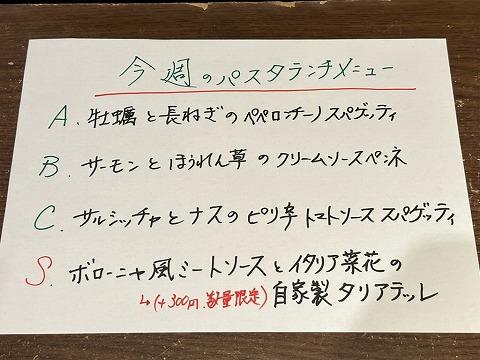 今週のパスタランチメニュー
A. 牡蠣と長ねぎのペペロンチーノスパゲッティ
B. サーモンとほうれん草のクリームソースペンネ
C. サルシッチャとナスのピリ辛トマトソーススパゲッティ
S. ボローニャ風ミートソースとイタリア菜花の
↳(+300円、数量限定) 自家製タリアテッレ